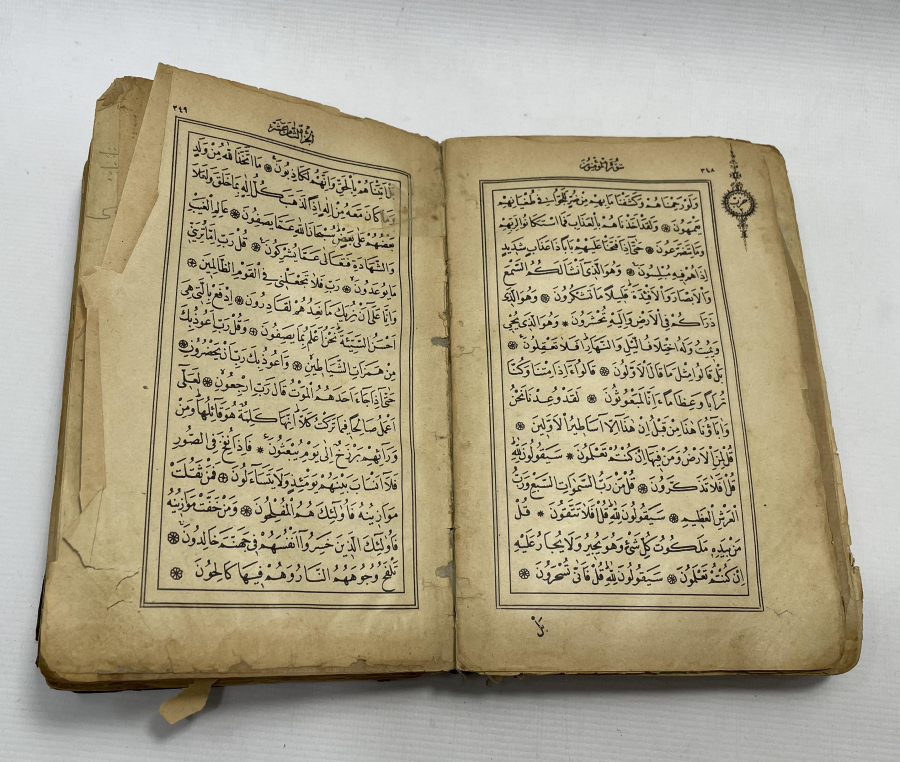 ٣٤٨
سُورَةُ الْمُؤْمِنُونَ
وَلَوْ رَحِمْنَاهُمْ وَكَشَفْنَا مَا بِهِمْ مِنْ ضُرٍّ لَلَجُّوا فِي طُغْيَانِهِمْ
يَعْمَهُونَ ۞ وَلَقَدْ اَخَذْنَاهُمْ بِالْعَذَابِ فَمَا اسْتَكَانُوا لِرَبِّهِمْ
وَمَا يَتَضَرَّعُونَ ۞ حَتّٰى اِذَا فَتَحْنَا عَلَيْهِمْ بَابًا ذَا عَذَابٍ شَدِيدٍ
اِذَا هُمْ فِيهِ مُبْلِسُونَ ۞ وَهُوَ الَّذِي اَنْشَاَ لَكُمُ السَّمْعَ
وَالْاَبْصَارَ وَالْاَفْئِدَةَ قَلِيلًا مَا تَشْكُرُونَ ۞ وَهُوَ الَّذِي
ذَرَاَكُمْ فِي الْاَرْضِ وَاِلَيْهِ تُحْشَرُونَ ۞ وَهُوَ الَّذِي يُحْيِي
وَيُمِيتُ وَلَهُ اخْتِلَافُ الَّيْلِ وَالنَّهَارِ اَفَلَا تَعْقِلُونَ ۞
بَلْ قَالُوا مِثْلَ مَا قَالَ الْاَوَّلُونَ ۞ قَالُوا ءَاِذَا مِتْنَا وَكُنَّا
تُرَابًا وَعِظَامًا ءَاِنَّا لَمَبْعُوثُونَ ۞ لَقَدْ وُعِدْنَا نَحْنُ
وَاٰبَاؤُنَا هٰذَا مِنْ قَبْلُ اِنْ هٰذَا اِلَّا اَسَاطِيرُ الْاَوَّلِينَ ۞
قُلْ لِمَنِ الْاَرْضُ وَمَنْ فِيهَا اِنْ كُنْتُمْ تَعْلَمُونَ ۞ سَيَقُولُونَ لِلّٰهِ
قُلْ اَفَلَا تَذَكَّرُونَ ۞ قُلْ مَنْ رَبُّ السَّمٰوَاتِ السَّبْعِ وَرَبُّ
الْعَرْشِ الْعَظِيمِ ۞ سَيَقُولُونَ لِلّٰهِ قُلْ اَفَلَا تَتَّقُونَ ۞ قُلْ
مَنْ بِيَدِهِ مَلَكُوتُ كُلِّ شَيْءٍ وَهُوَ يُجِيرُ وَلَا يُجَارُ عَلَيْهِ
اِنْ كُنْتُمْ تَعْلَمُونَ ۞ سَيَقُولُونَ لِلّٰهِ قُلْ فَاَنّٰى تُسْحَرُونَ ۞
بَلْ
٣٤٩
اَلْجُزْءُ الثَّامِنَ عَشَرَ
بَلْ اَتَيْنَاهُمْ بِالْحَقِّ وَاِنَّهُمْ لَكَاذِبُونَ ۞ مَا اتَّخَذَ اللّٰهُ مِنْ وَلَدٍ
وَمَا كَانَ مَعَهُ مِنْ اِلٰهٍ اِذًا لَذَهَبَ كُلُّ اِلٰهٍ بِمَا خَلَقَ وَلَعَلَا
بَعْضُهُمْ عَلٰى بَعْضٍ سُبْحَانَ اللّٰهِ عَمَّا يَصِفُونَ ۞ عَالِمِ الْغَيْبِ
وَالشَّهَادَةِ فَتَعَالٰى عَمَّا يُشْرِكُونَ ۞ قُلْ رَبِّ اِمَّا تُرِيَنِّي
مَا يُوعَدُونَ ۞ رَبِّ فَلَا تَجْعَلْنِي فِي الْقَوْمِ الظَّالِمِينَ ۞
وَاِنَّا عَلٰى اَنْ نُرِيَكَ مَا نَعِدُهُمْ لَقَادِرُونَ ۞ اِدْفَعْ بِالَّتِي هِيَ
اَحْسَنُ السَّيِّئَةَ نَحْنُ اَعْلَمُ بِمَا يَصِفُونَ ۞ وَقُلْ رَبِّ اَعُوذُ بِكَ
مِنْ هَمَزَاتِ الشَّيَاطِينِ ۞ وَاَعُوذُ بِكَ رَبِّ اَنْ يَحْضُرُونِ ۞
حَتّٰى اِذَا جَاءَ اَحَدَهُمُ الْمَوْتُ قَالَ رَبِّ ارْجِعُونِ ۞ لَعَلِّي
اَعْمَلُ صَالِحًا فِيمَا تَرَكْتُ كَلَّا اِنَّهَا كَلِمَةٌ هُوَ قَائِلُهَا وَمِنْ
وَرَائِهِمْ بَرْزَخٌ اِلٰى يَوْمِ يُبْعَثُونَ ۞ فَاِذَا نُفِخَ فِي الصُّورِ
فَلَا اَنْسَابَ بَيْنَهُمْ يَوْمَئِذٍ وَلَا يَتَسَاءَلُونَ ۞ فَمَنْ ثَقُلَتْ
مَوَازِينُهُ فَاُولٰئِكَ هُمُ الْمُفْلِحُونَ ۞ وَمَنْ خَفَّتْ مَوَازِينُهُ
فَاُولٰئِكَ الَّذِينَ خَسِرُوا اَنْفُسَهُمْ فِي جَهَنَّمَ خَالِدُونَ ۞
تَلْفَحُ وُجُوهَهُمُ النَّارُ وَهُمْ فِيهَا كَالِحُونَ ۞